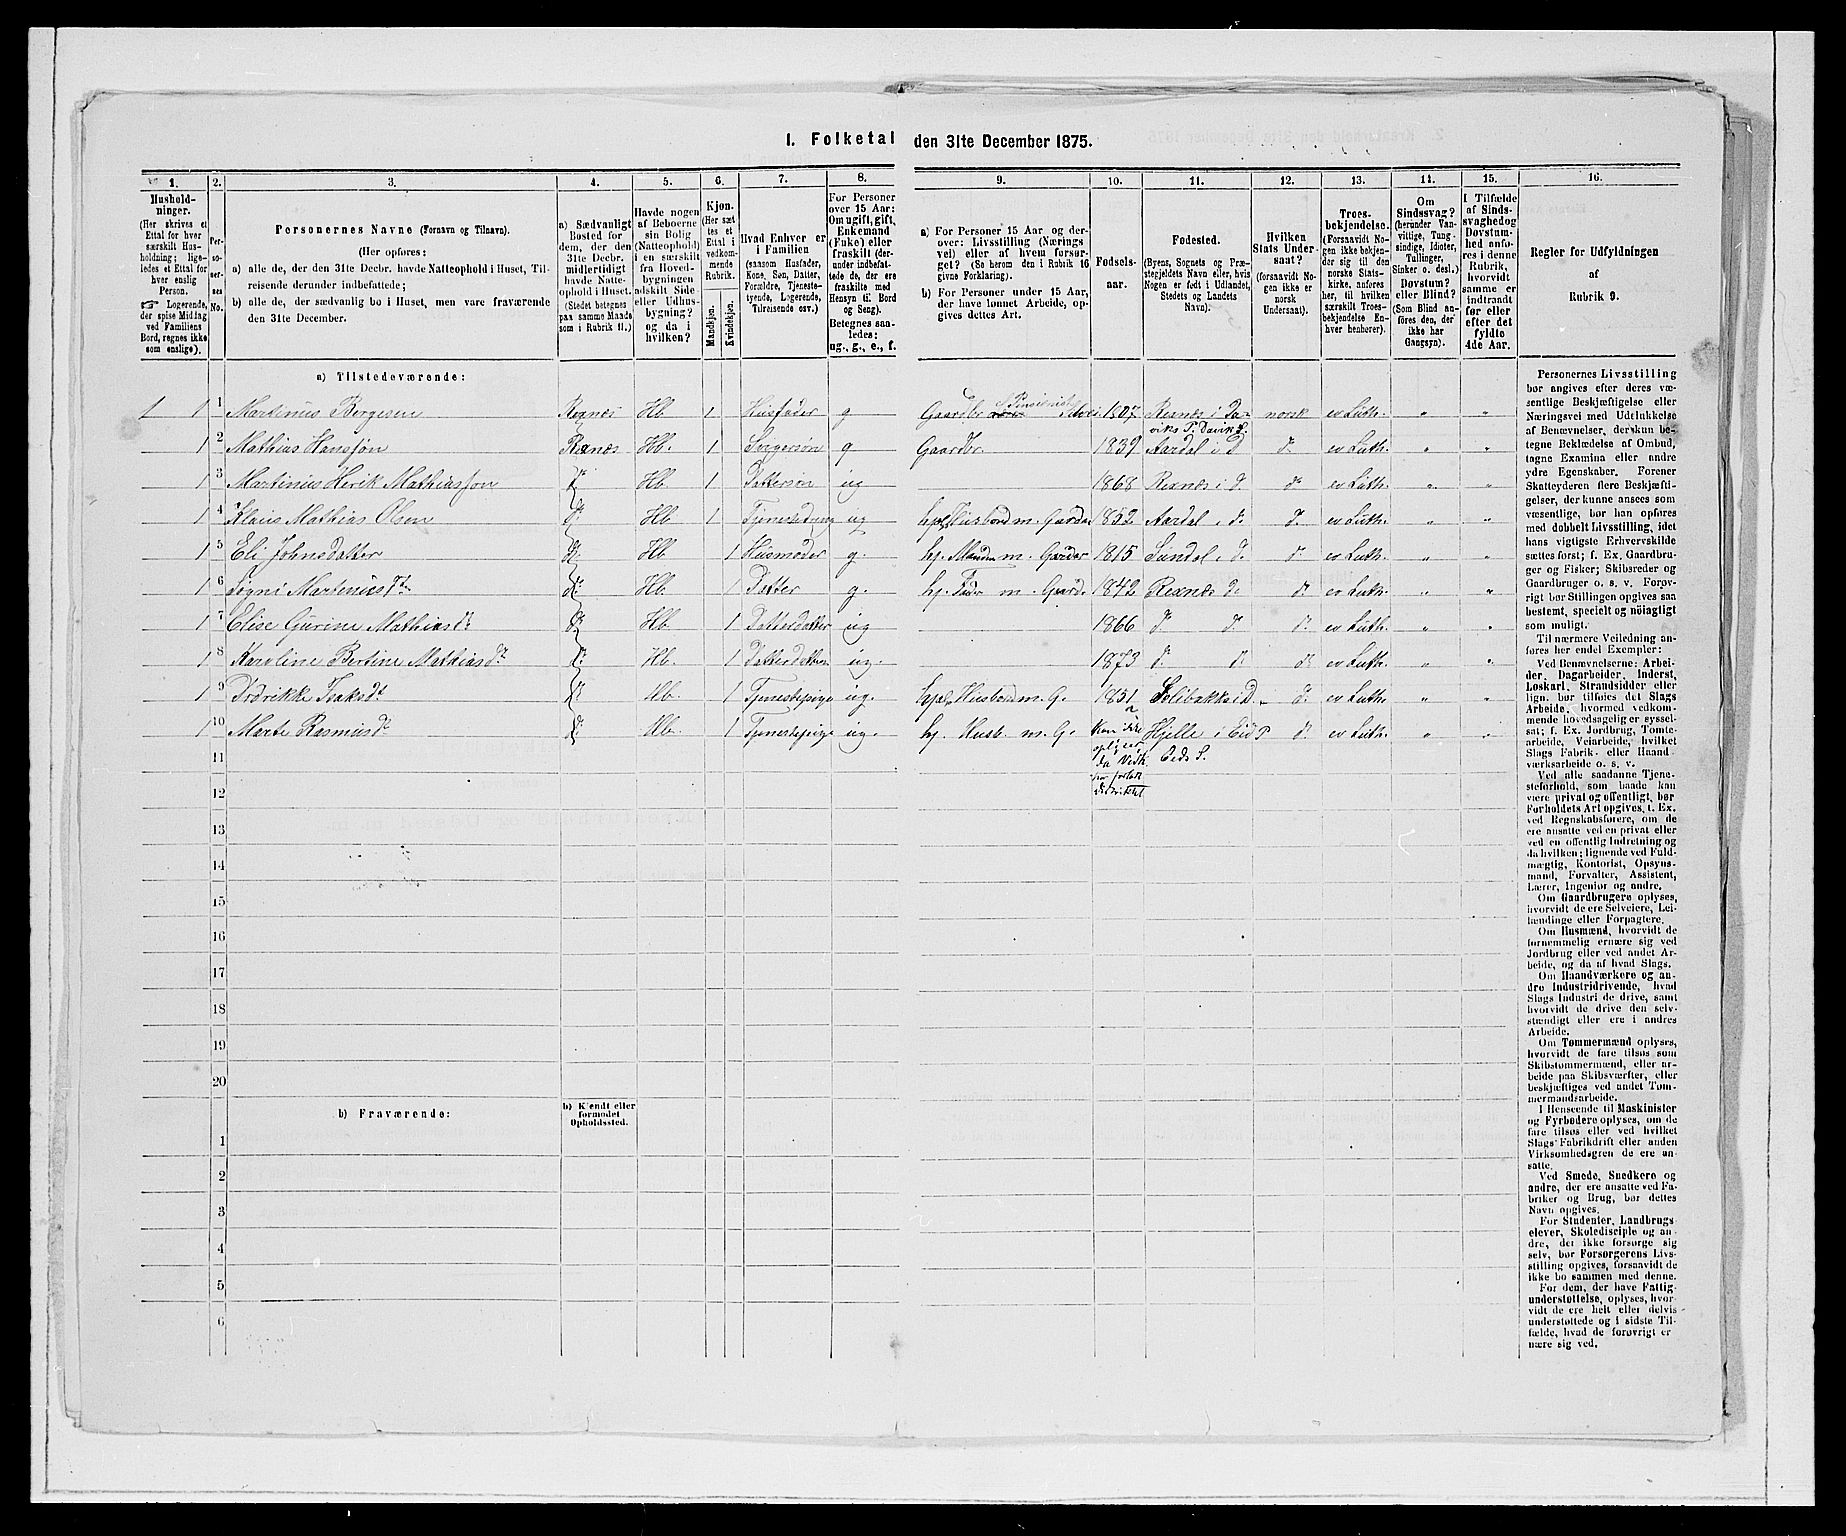 I. Folketal den 31te December 1875.
1. 2. 3. 4. 5. 6. 7. 8. 9. 10. 11. 12. 13. 14. 15. 16.
Husholdninger.
(Her skrives et
Ettal for hver
særskilt Husholdning; ligeledes
et Ettal for
hver enslig
Person.
☞ Logerende,
der spise Middag
ved Familiens
Bord, regnes ikke
som enslige).
Personernes No.
Personernes Navne (Fornavn og Tilnavn).
(Her opføres:
a) alle de, der den 31te Decbr. havde Natteophold i Huset, Tilreisende derunder indbefattede;
b) alle de, der sædvanlig bo i Huset, men vare fraværende
den 31te December.
a) Sædvanligt
Bosted for
dem, der den
31te Decbr.
midlertidigt
havde Natteophold i Huset.
(Stedet betegnes
paa samme Maade
som i Rubrik 11.)
Havde nogen
af Beboerne
sin Bolig
(Natteophold)
i en særskilt
fra Hovedbygningen
adskilt Side- eller Udhusbygning?
og da i
hvilken?
Kjøn.
(Her sættes et
Ettal i
vedkommende
Rubrik.
Mandkjøn.
Kvindekjøn.
Hvad Enhver er
i Familien
(saasom Husfader,
Kone, Søn, Datter,
Forældre, Tjenestetyende, Logerende,
Tilreisende osv.)
For Personer
over 15 Aar:
Om ugift, gift,
Enkemand
(Enke) eller
fraskilt (derunder indbefattede de, der ere
fraskilte med
Hensyn til Bord
og Seng).
Betegnes saaledes:
ug., g., e., f.
a) For Personer 15 Aar og derover: Livsstilling (Næringsvei) eller af hvem forsørget? (Se herom den i Rubrik 16
givne Forklaring).
b) For Personer under 15 Aar,
der have lønnet Arbeide, opgives dettes Art.
Fødselsaar.
Fødested.
(Byens, Sognets og Præstegjeldets Navn eller, hvis
Nogen er født i Udlandet,
Stedets og Landets
Navn).
Hvilken
Stats Undersaat?
(forsaavidt Nogen ikke er
norsk
Undersaat).
Troesbekjendelse.
(Forsaavidt Nogen ikke bekjender sig til den
norske Statskirke, anføres
her, til hvilken
særskilt Troesbekjendelse Enhver henhører).
Om
Sindssvag?
(herunder Vanvittige, Tungsindige, Idioter,
Tullinger,
Sinker o. desl.)
Døvstum?
eller Blind?
(Som Blind anføres den, der
ikke har
Gangsyn).
I Tilfælde
af Sindssvaghed og
Døvstumhed anføres i denne
Rubrik,
hvorvidt
samme er
indtraadt
før eller
efter det
fyldte
4de Aar.
Regler for Udfyldningen
af
Rubrik 9.
a) Tilstedeværende:
1 1 1 Martinus Børgesen Rexnæs Hb 1 Husfader g Gaardbr Pensionist Selvei 1807 Rexnæs i Daviks P. Davik S. norsk ev Luth. " "
1 2 Mathias Hansson Rexnæs Hb. 1 Svigersøn g Gaardbr. 1839 Aardal i D do ev Luth. " "
1 3 Martinus Herik Mathiasson do Hb. 1 Dattersøn ug 1868 Rexnæs i d. do ev Luth. " "
1 4 Klaus Mathias Olsen do Hb 1 ug hjpl. Husbond m. Gardar 1852 Aardal i do do ev Luth. " "
1 5 Eli Johnsdatter do Hb 1 Husmoder g. hj. Manden m. Gardar 1815 Sundal i do do ev Luth. " "
1 6 Søgni Martinusdtr do Hb. 1 Datter g. hj. Fader m. Gard. 1842 Rexnæs do do ev Luth. " "
1 7 Elise Gurine Mathiasdr do Hb. 1 Datterdatter ug 1866 do do do ev Luth. " "
1 8 Karoline Bertine Mathiasdr do Hb. 1 Datterdatter ug. 1873 do do do ev Luth. " "
1 9 Isaksdt do Hb. 1 Tjenestepige ug. hjpl Husbond m. G. 1851 i D. do ev Luth. " "
1 10 Marte Rasmusdr do Hb. 1 Tjenestepige ug. hj. Husb. m. G. Kan ikke da Vedk. har forladt distriktet Hjelle i Eid P Eids S. do ev Luth. " "
11
12
13
14
15
16
17
18
19
20
b) Fraværende:
b) Kjendt eller
formodet
Opholdssted.
1
2
3
4
5
6
Personernes Livsstilling
bør angives efter deres væsentlige Beskjæftigelse eller
Næringsvei med Udelukkelse
af Benævnelser, der kun betegne Beklædelse af Ombud,
tagne Examina eller andre
ydre Egenskaber. Forener
Skatteyderen flere Beskjæftigelser, der kunne ansees som
væsentlige, bør han opføres
med dobbelt Livsstilling, idet
hans vigtigste Erhvervskilde
sættes først; f. Ex. Gaardbruger og Fisker; Skibsreder og
Gaardbruger o. s. v. Forøvrigt bør Stillingen opgives saa
bestemt, specielt og nøiagtigt
som muligt.
Til nærmere Veiledning anføres her endel Exempler:
Ved Benævnelserne: Arbeider, Dagarbeider, Inderst,
Løskarl, Strandsidder eller
lign. bør tilføies det Slags
Arbeide, hvormed vedkommende hovedsagelig er sysselsat; f. Ex. Jordbrug, Tomtearbeide, Veiarbeide, hvilket
Slags Fabrik- eller Haandværksarbeide o. s. v.
Ved alle saadanne Tjenesteforhold, som baade kan
være privat og offentligt, bør
Forholdets Art opgives, t. Ex.
ved Regnskabsførere, om de
ere ansatte ved en privat eller
ved en offentlig Indretning og
da hvilken; lignende ved Fuldmægtig, Kontorist, Opsynsmand, Forvalter, Assistent,
Lærer, Ingeniør og andre.
Om Gaardbrugere oplyses,
hvorvidt de ere Selveiere, Leilændinge eller Forpagtere.
Om Husmænd, hvorvidt de
fornemmelig ernære sig ved
Jordbrug eller ved andet Arbeide, og da af hvad Slags.
Om Haandværkere og andre Industridrivende, hvad
Slags Industri de drive, samt
hvorvidt de drive den selvstændigt eller ere i andres
Arbeide.
Om Tømmermænd oplyses,
hvorvidt de fare tilsøs som
Skibstømmermænd, eller arbeide paa Skibsværfter, eller
beskjæftiges ved andet Tømmermandsarbeide.
I Henseende til Maskinister
og Fyrbødere oplyses, om de
fare tilsøs eller ved hvilket
Slags Fabrikdrift eller anden
Virksomhedsgren de ere ansatte.
Ved Smede, Snedkere og
andre, der ere ansatte ved Fabriker og Brug, bør dettes
Navn opgives.
For Studenter, Landbrugselever, Skoledisciple og andre, der ikke forsørge sig
selv, bør Forsørgerens Livsstilling opgives, forsaavidt de
ikke bo sammen med denne.
For dem, der have Fattigunderstøttelse, oplyses, hvorvidt de ere helt eller delvis
understøttede og i sidste Tilfælde, hvad de forøvrigt ernære sig ved.